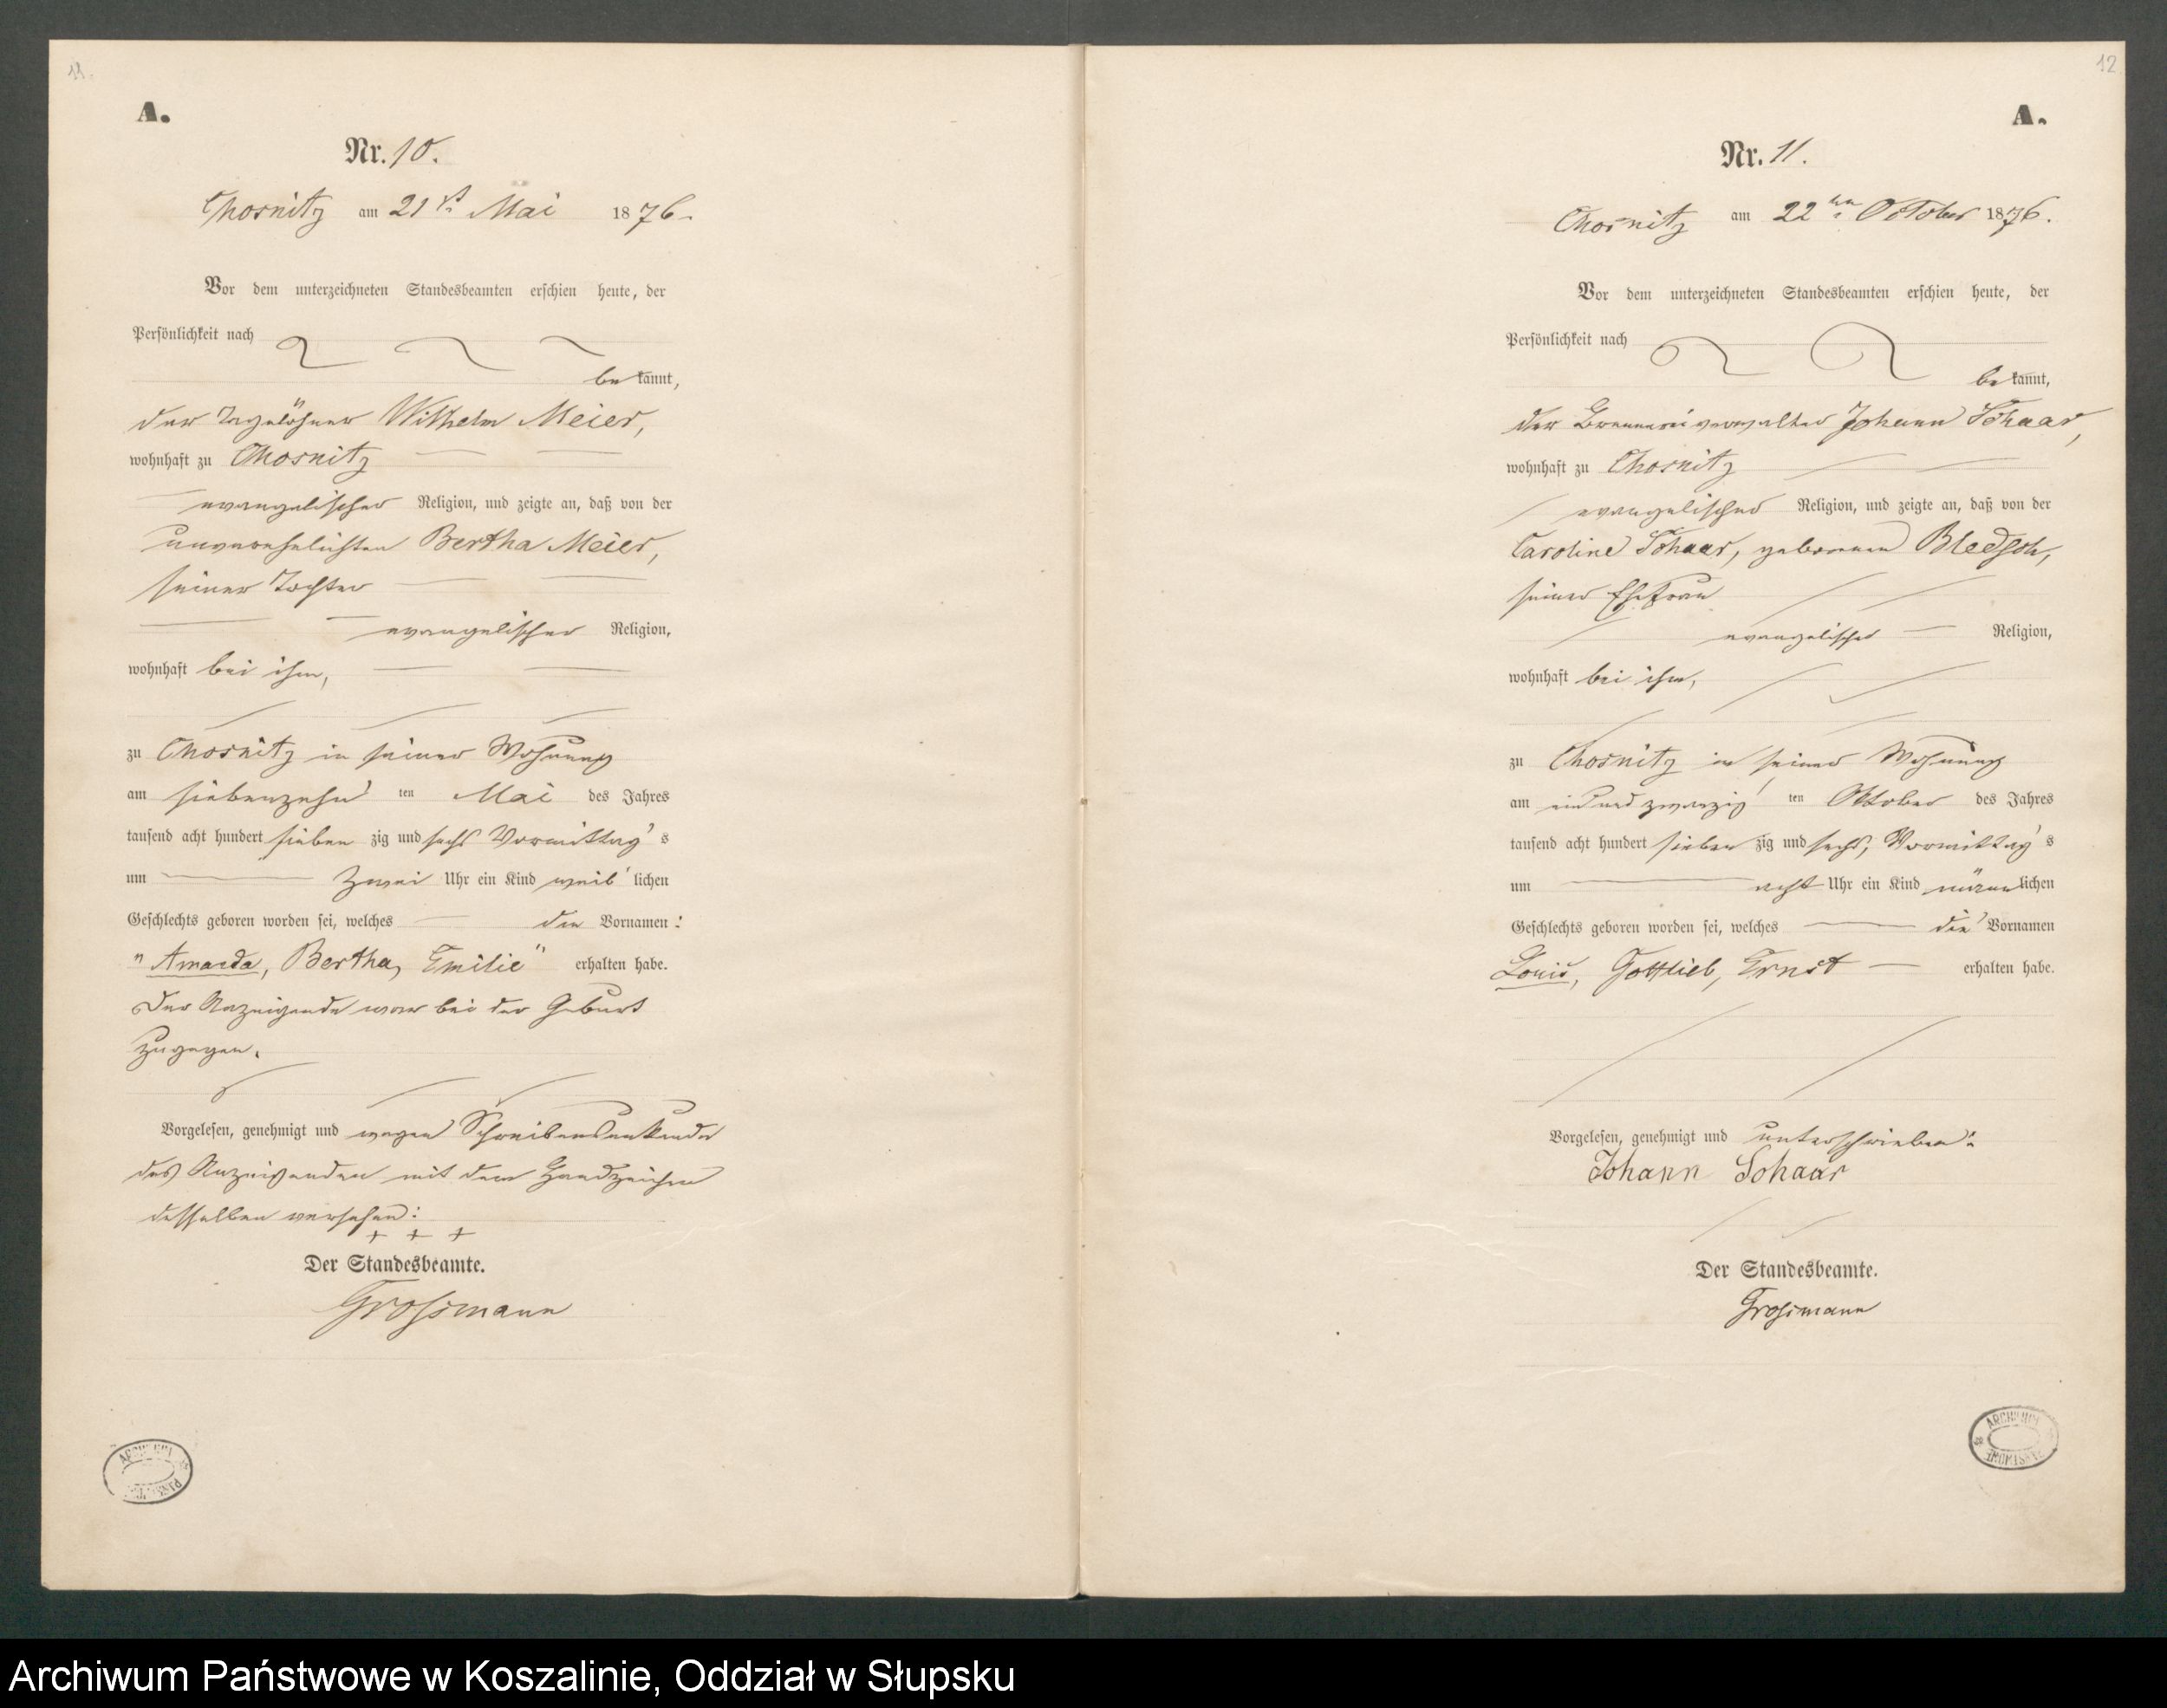 11.
A.
Nr. 10.
Chosnitz am 21 ten Mai 1876.
Vor dem unterzeichneten Standesbeamten erschien heute, der
Persönlichkeit nach
bekannt,
der Tagelöhner Wilhelm Meier,
wohnhaft zu Chosnitz
evangelischer Religion, und zeigte an, daß von der
unverehelichten Bertha Meier,
seiner Tochter
evangelischer Religion,
wohnhaft bei ihm,
zu Chosnitz in seiner Wohnung
am siebenzehn ten Mai des Jahres
tausend acht hundert sieben zig und sechs Vormittag s
um zwei Uhr ein Kind weib lichen
Geschlechts geboren worden sei, welches den Vornamen:
"Amanda, Bertha, Emilie" erhalten habe.
Der Anzeigende war bei der Geburt
zugegen.
Vorgelesen, genehmigt und wegen Schreibensunkunde
des Anzeigenden mit dem Handzeichen
desselben versehen:
+ + +
Der Standesbeamte.
Grossmann
12
A.
Nr. 11.
Chosnitz am 22 ten October 1876.
Vor dem unterzeichneten Standesbeamten erschien heute, der
Persönlichkeit nach
bekannt,
der Brennereiverwalter Johann Schaar,
wohnhaft zu Chosnitz
evangelischer Religion, und zeigte an, daß von der
Caroline Schaar, geborenen
seiner Ehefrau
evangelischer Religion,
wohnhaft bei ihm,
zu Chosnitz in seiner Wohnung
am einundzwanzig ten Oktober des Jahres
tausend acht hundert sieben zig und sechs, Vormittag s
um acht Uhr ein Kind männ lichen
Geschlechts geboren worden sei, welches die Vornamen
Louis, Gottlieb, Ernst erhalten habe.
Vorgelesen, genehmigt und unterschrieben:
Johann Schaar
Der Standesbeamte.
Grossmann
Archiwum Państwowe w Koszalinie, Oddział w Słupsku